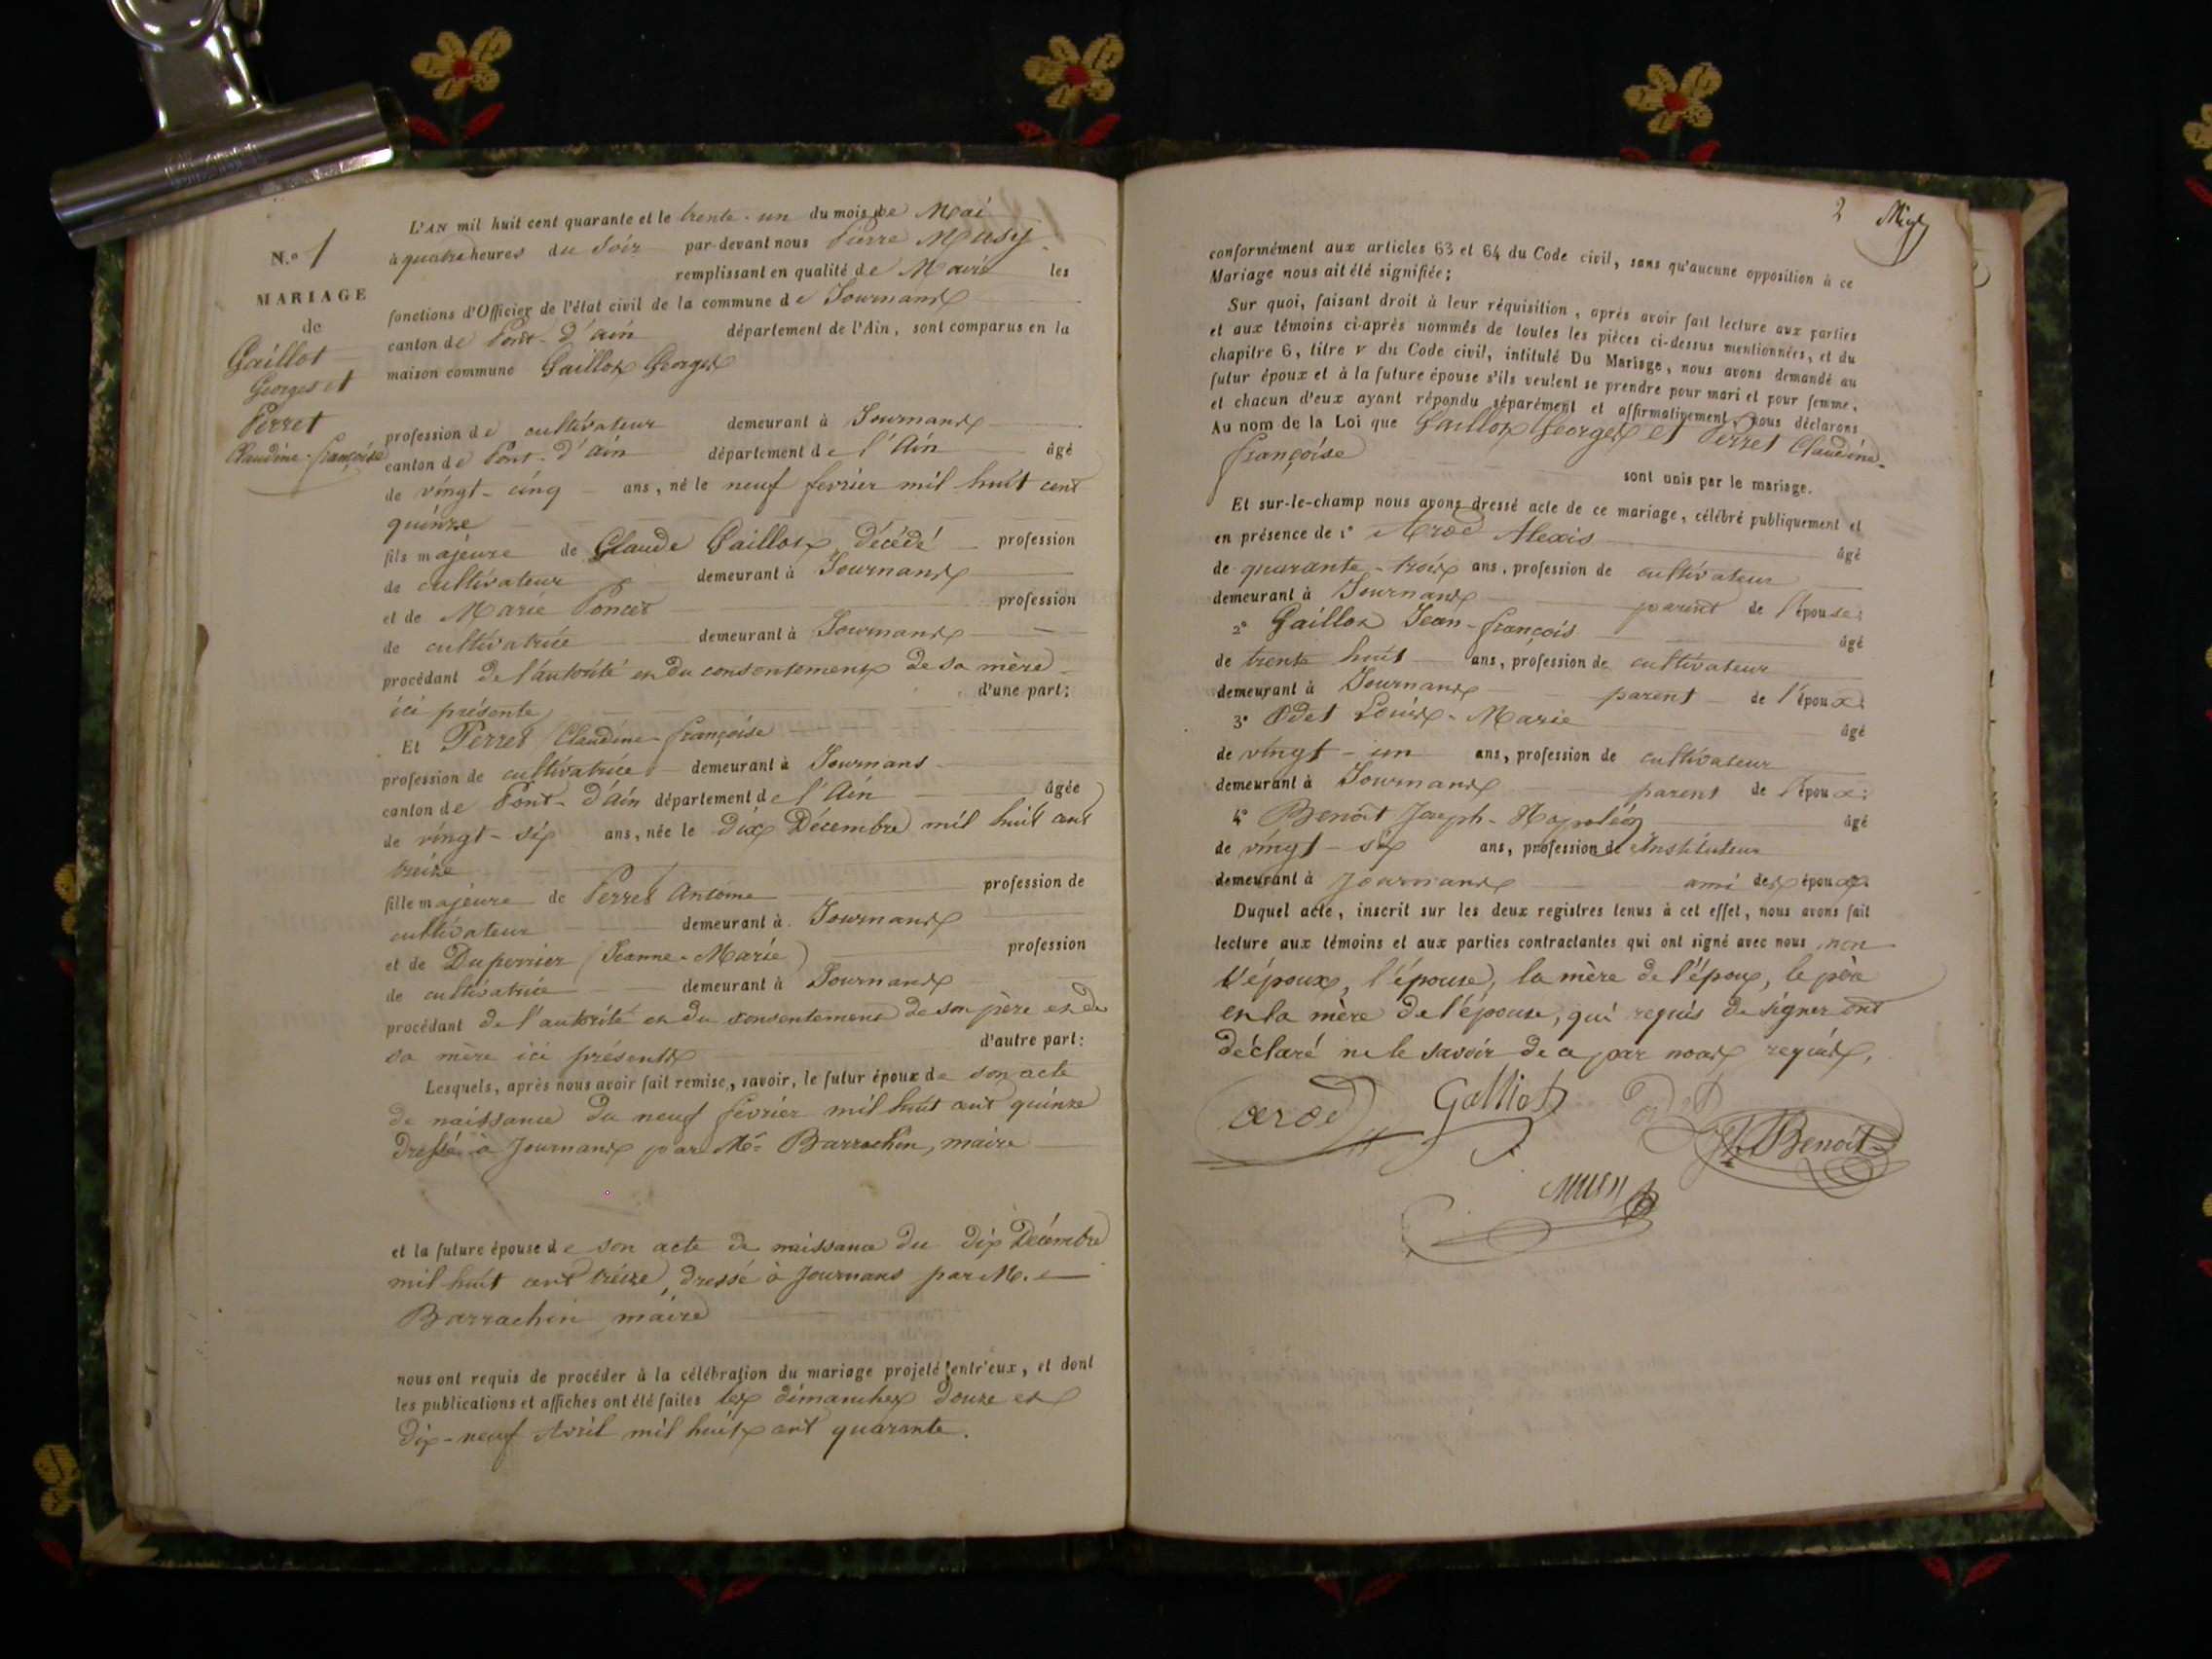 N.º 1
MARIAGE
de
Gaillot
Georges et
Perret
Claudine-françoise
L'AN mil huit cent quarante et le trente-un du mois de Mai
à quatre heures du Soir par-devant nous Pierre Musy
remplissant en qualité de Maire les
fonctions d'Officier de l'état civil de la commune de Journans
canton de Pont-d'ain département de l'Ain, sont comparus en la
maison commune Gaillot Georges
profession de cultivateur demeurant à Journans
canton de Pont-d'ain département de l'Ain âgé
de vingt-cinq ans, né le neuf fevrier mil huit cent
quinze
fils majeure de Claude Gaillot décédé profession
de cultivateur demeurant à Journans
et de Marie Poncet profession
de cultivatrice demeurant à Journans
procédant de l'autorité et du consentement de sa mère
d'une part;
ici présente
Et Perret Claudine-françoise
profession de cultivatrice demeurant à Journans
canton de Pont-d'Ain département de l'Ain âgée
de vingt-six ans, née le dix Décembre mil huit cent
treize
fille majeure de Perret Antoine profession de
cultivateur demeurant à Journans
et de Duperrier (Jeanne-Marie) profession
de cultivatrice demeurant à Journans
procédant de l'autorité et du consentement de son père et de
sa mère ici présents d'autre part:
Lesquels, après nous avoir fait remise, savoir, le futur époux de son acte
de naissance du neuf février mil huit cent quinze
dressé à Journans par Mr Barrachin, maire
et la future épouse de son acte de naissance du dix Décembre
mil huit cent treize, dressé à Journans par M.
Barrachin maire
nous ont requis de procéder à la célébration du mariage projeté entr'eux, et dont
les publications et affiches ont été faites les dimanches douze et
dix-neuf Avril mil huit cent quarante.
2
conformément aux articles 63 et 64 du Code civil, sans qu'aucune opposition à ce
Mariage nous ait été signifiée;
Sur quoi, faisant droit à leur réquisition, après avoir fait lecture aux parties
et aux témoins ci-après nommés de toutes les pièces ci-dessus mentionnées, et du
chapitre 6, titre v du Code civil, intitulé Du Mariage, nous avons demandé au
futur époux et à la future épouse s'ils veulent se prendre pour mari et pour femme,
et chacun d'eux ayant répondu séparément et affirmativement, nous déclarons
Au nom de la Loi que Gaillot Georges et Perret Claudine-
françoise
sont unis par le mariage.
Et sur-le-champ nous avons dressé acte de ce mariage, célébré publiquement et
en présence de 1º Arod Alexis âgé
de quarante-trois ans, profession de cultivateur
demeurant à Journans parent de l'épouse;
2º Gaillot Jean-françois âgé
de trente huit ans, profession de cultivateur
demeurant à Journans parent de l'époux;
3º Odet Louis-Marie âgé
de vingt-un ans, profession de cultivateur
demeurant à Journans parent de l'époux;
4º Benoît Joseph-Napoléon âgé
de vingt-six ans, profession de Instituteur
demeurant à Journans ami des époux.
Duquel acte, inscrit sur les deux registres tenus à cet effet, nous avons fait
lecture aux témoins et aux parties contractantes qui ont signé avec nous non
l'époux, l'épouse, la mère de l'époux, le père
et la mère de l'épouse, qui requis de signer ont
déclaré ne le savoir de ce par nous requis,
arod Galliot odet Benoît
musy